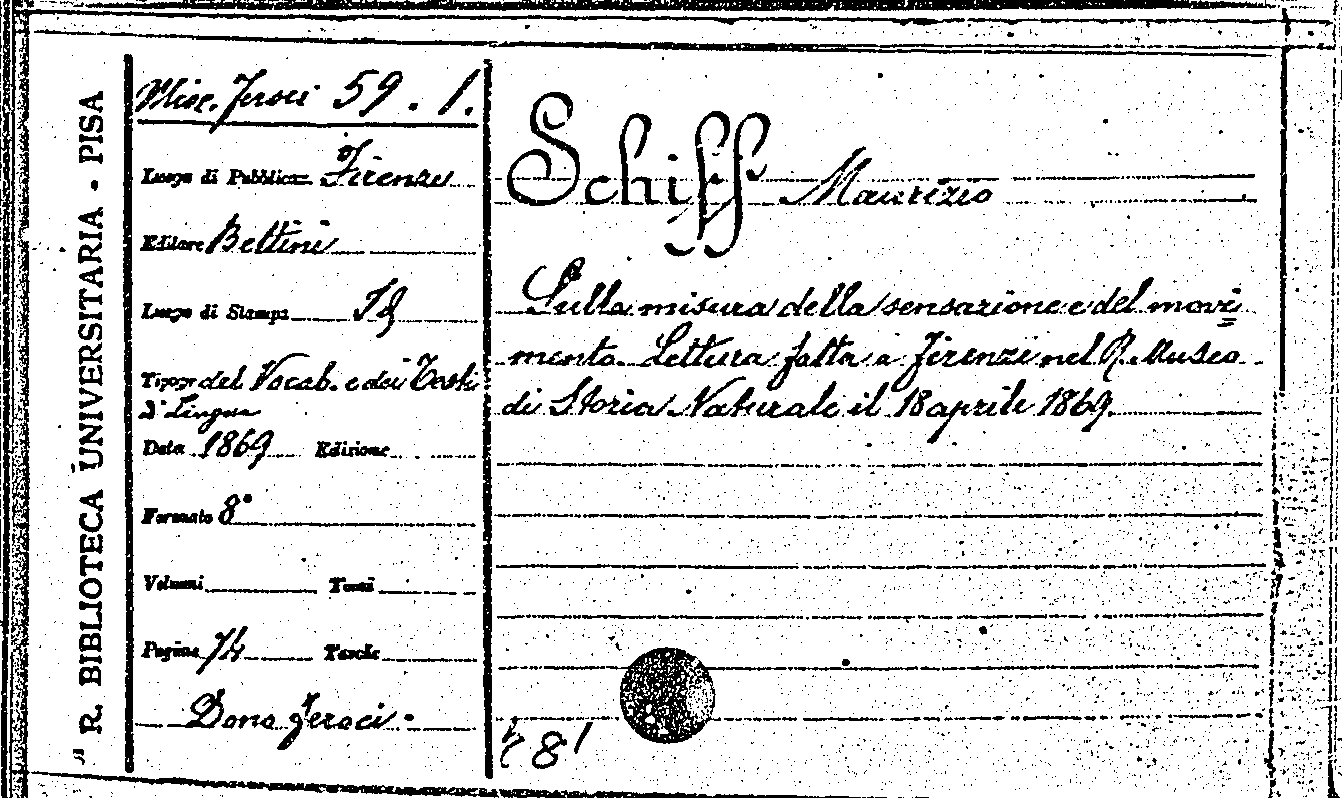 R. BIBLIOTECA UNIVERSITARIA - PISA
Misc. Feroci 59. 1.
Luogo di Pubblicaz. Firenze
Editore Bettini
Luogo di Stampa Id
Tipogr. del Vocab. e dei Testi
di Lingua
Data 1869 Edizione
Formato 8°
Volumi Tomi
Pagine 74 Tavole
Dono Feroci.
Schiff Maurizio
Sulla misura della sensazione e del movi
mento. Lettura fatta a Firenze nel R. Museo
di Storia Naturale il 18 aprile 1869.